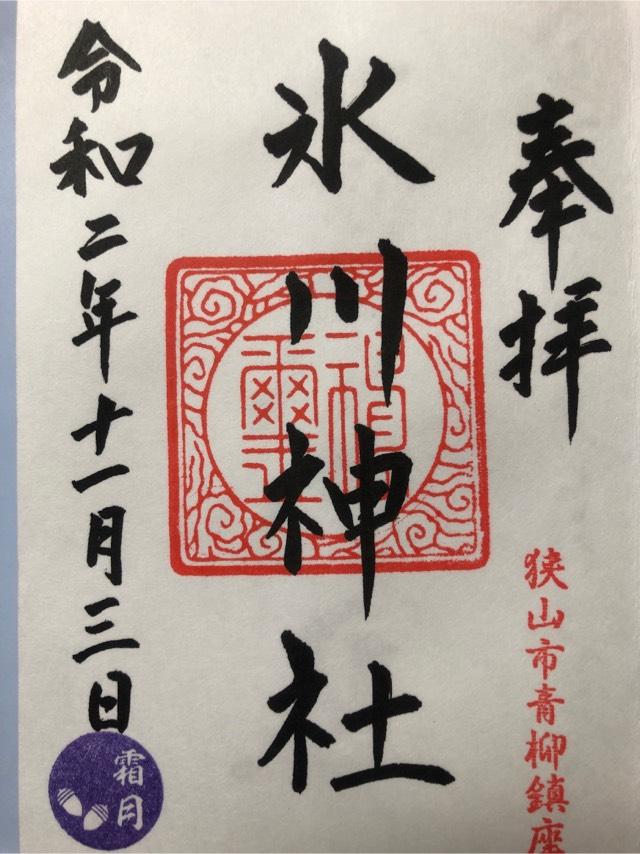 奉拝
狭山市青柳鎮座
氷川神社
神璽
令和二年十一月三日
霜月